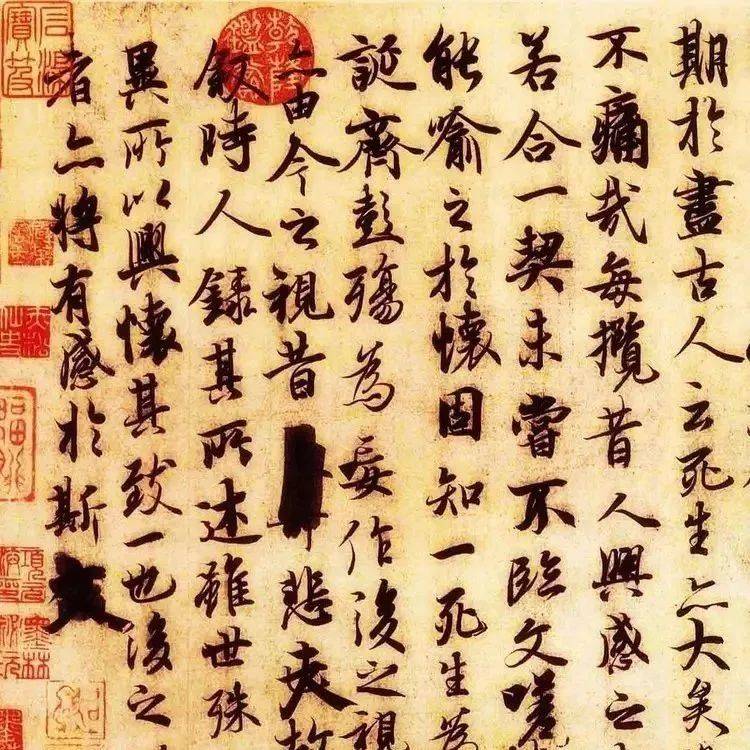 期於盡古人云死生亦大矣
不痛哉每攬昔人興感之
若合一契未嘗不臨文嗟
能喻之於懷固知一死生為
誕齊彭殤為妄作後之視
亦由今之視昔悲夫故
敘時人錄其所述雖世殊
異所以興懷其致一也後之
者亦將有感於斯文